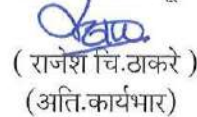 ( राजेश चिं.ठाकरे )
(अति.कार्यभार)